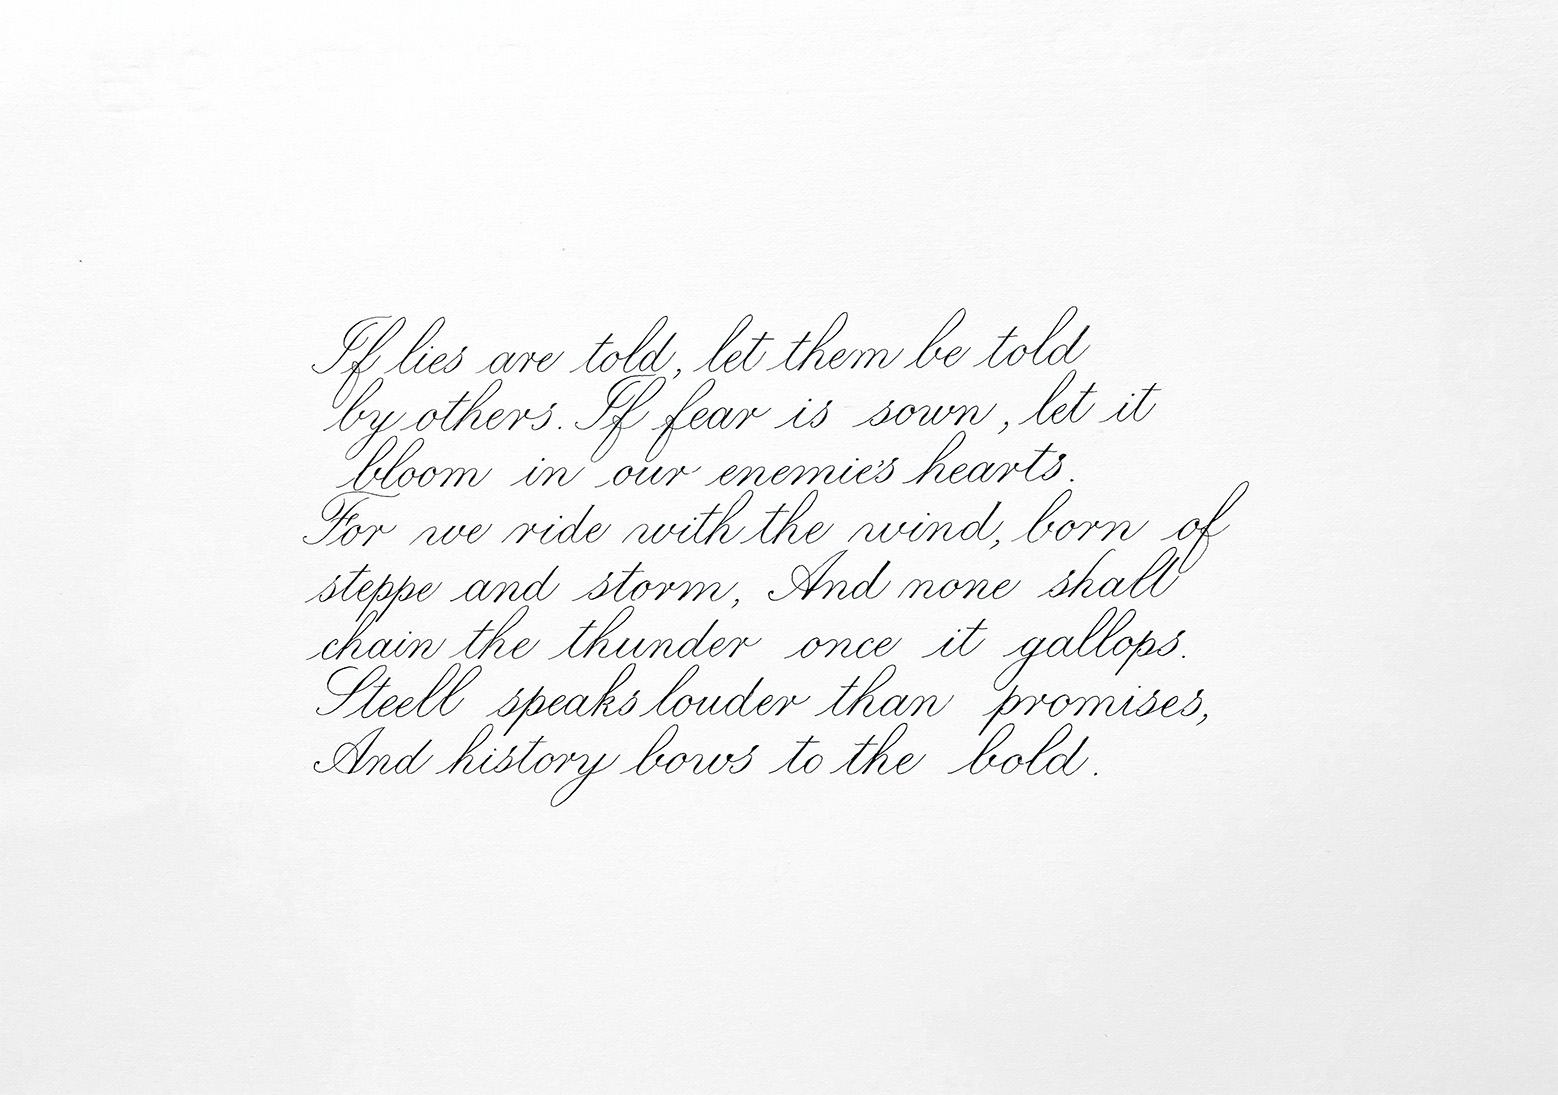 If lies are told, let them be told
by others. If fear is sown, let it
bloom in our enemie's hearts.
For we ride with the wind, born of
steppe and storm, And none shall
chain the thunder once it gallops.
Steell speaks louder than promises,
And history bows to the bold.